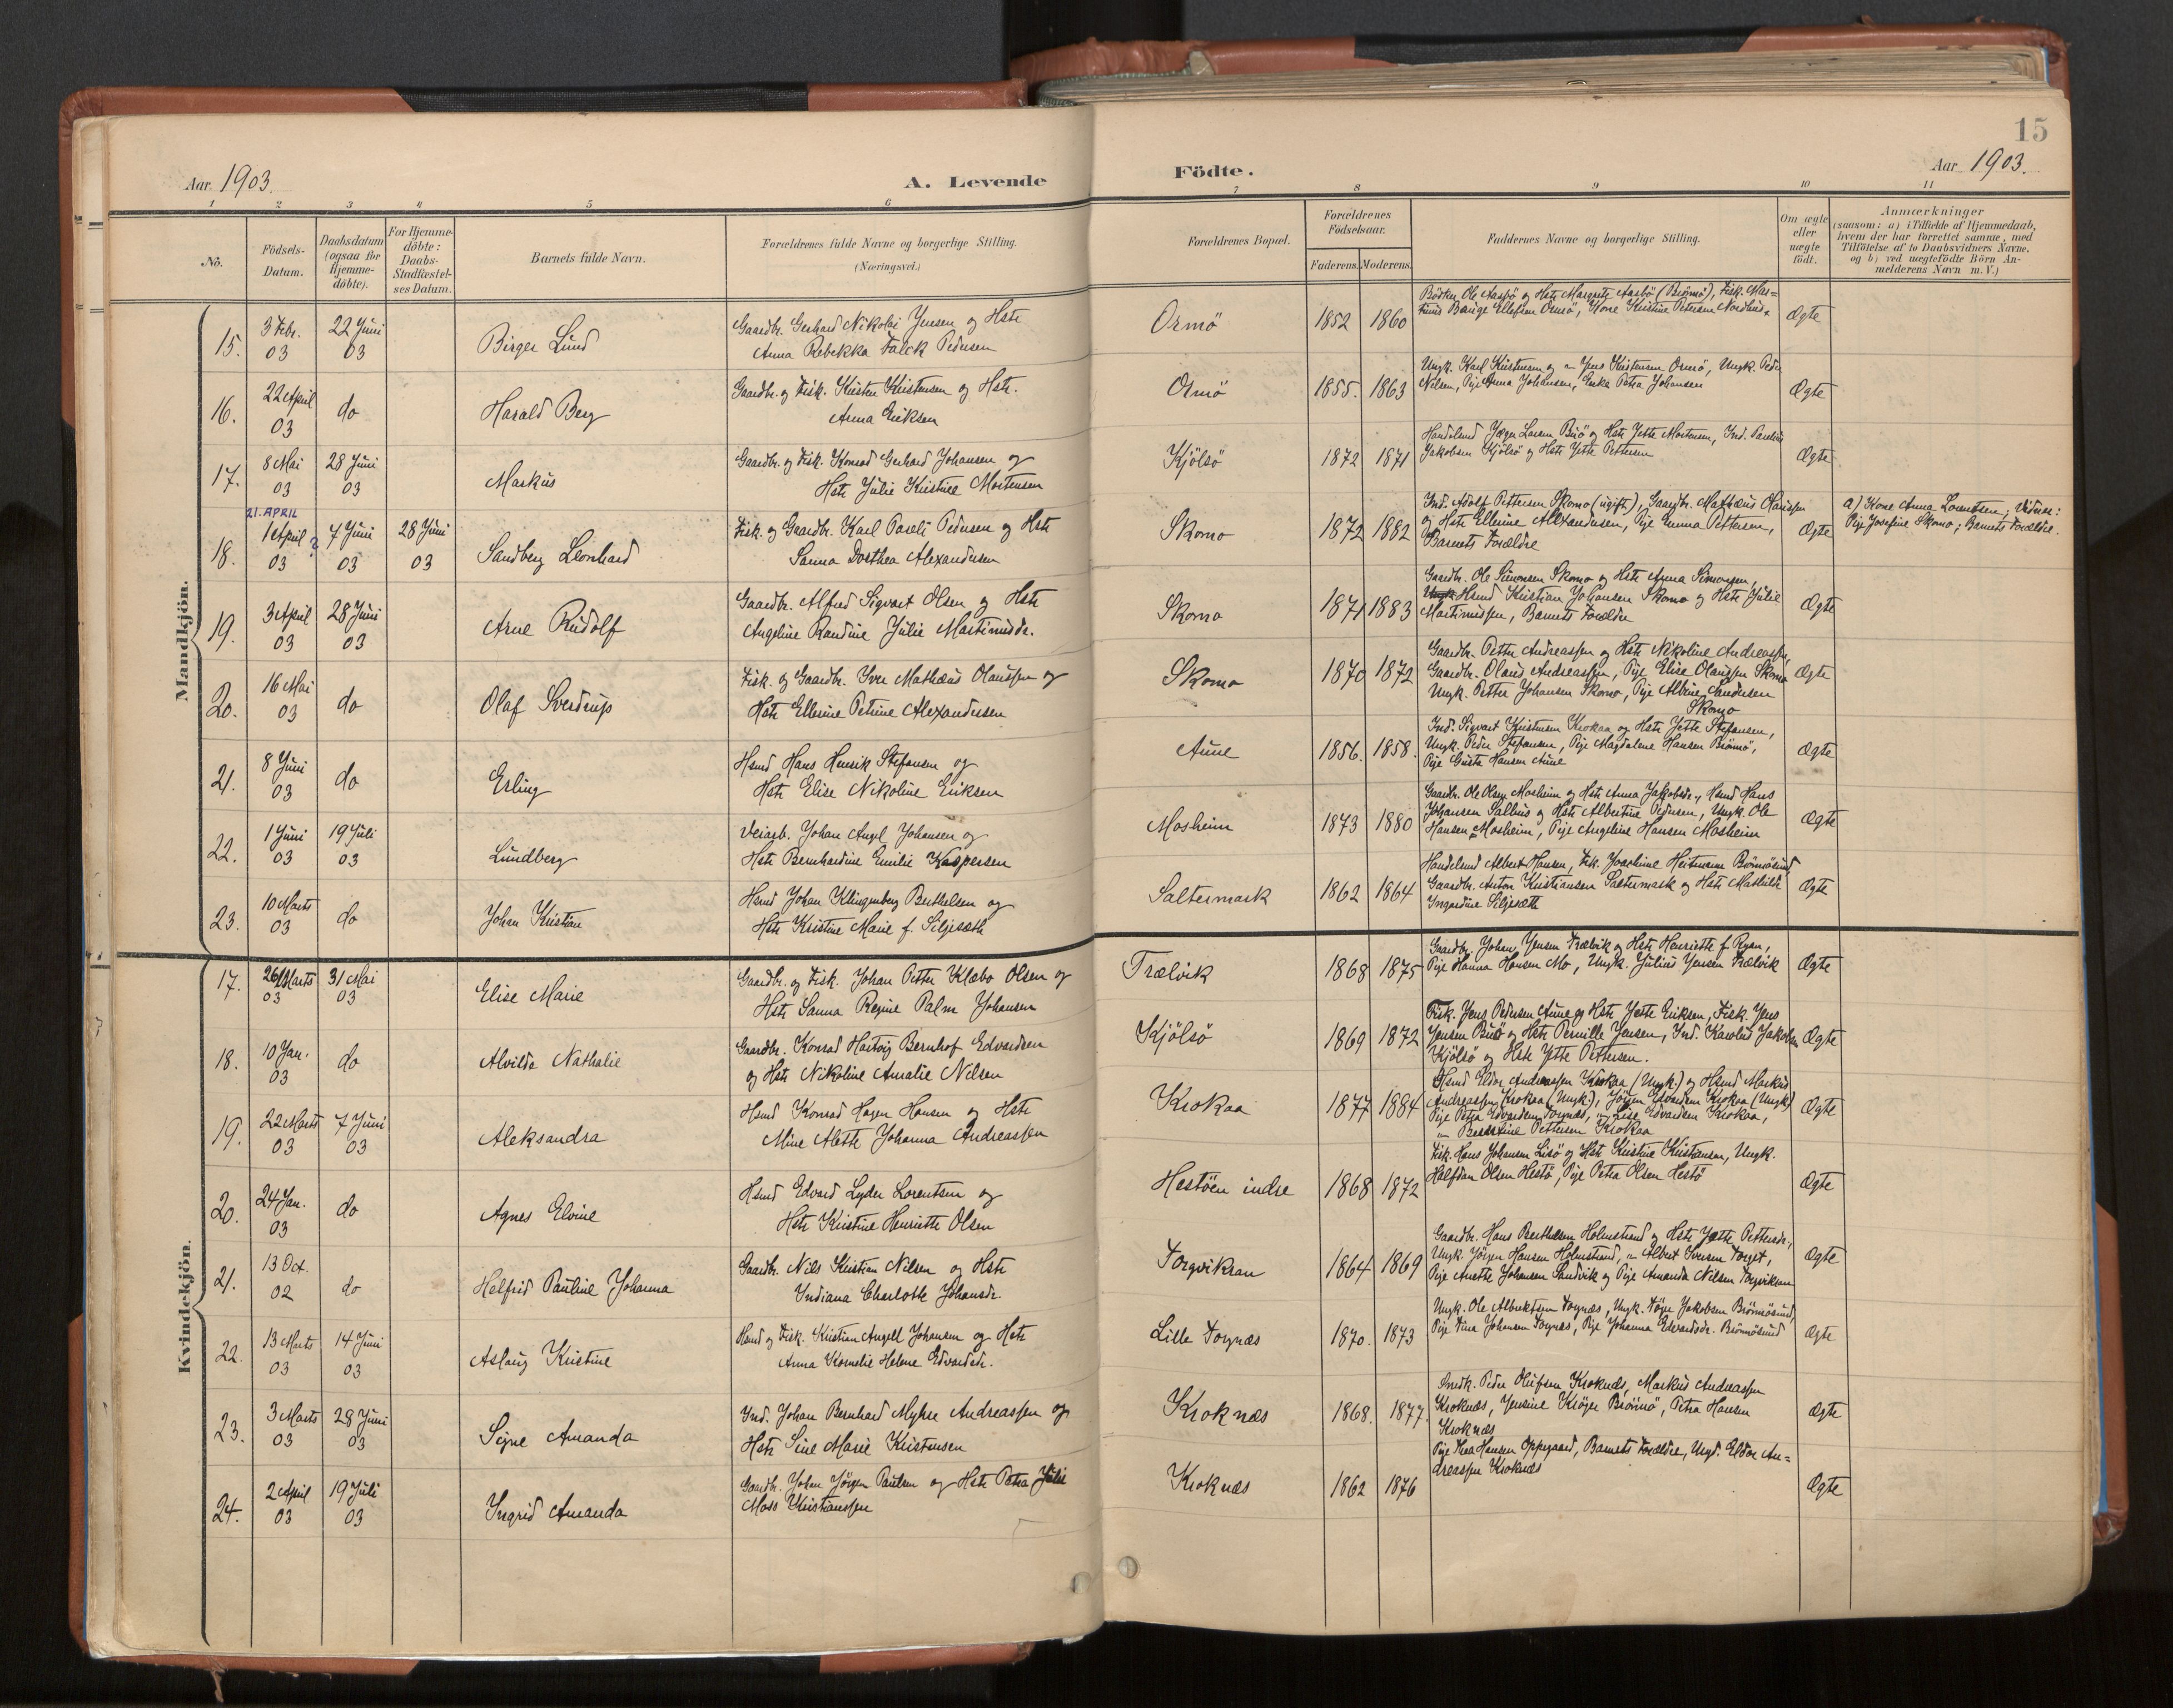 15
Aar 1903.
A. Levende
Födte.
Aar 1903.
1 2 3 4 5 6 7 8 9 10 11
No.
Födsels-
Datum.
Daabsdatum
(ogsaa for
Hjemme-
döbte).
For Hjemme-
döbte:
Daabs-
Stadfæstel-
ses Datum.
Barnets fulde Navn.
Forældrenes fulde Navne og borgerlige Stilling.
(Næringsvei.)
Forældrenes Bopæl.
Forældrenes
Födselsaar.
Faderens. Moderens.
Faddernes Navne og borgerlige Stilling.
Om ægte
eller
uægte
födt.
Anmærkninger
(saasom: a) i Tilfælde af Hjemmedaab,
hvem der har forrettet samme, med
Tilföielse af to Daabsvidners Navne,
og b) ved uegtefödte Börn An-
melderens Navn m. V.)
Mandkjön.
15.
3 Febr.
03
22 Juni
03
Birger Lund
Gaardbr. Gerhard Nikolai Jensen og Hstr
Anna Rebekka Falck Pedersen
Ormö
1852 1860
Bödker Ole Aasbö og Hstr Margrete Aasbö (Brönnö), Fisk. Mas=
Ellefsen Ormö, Kone Kristine Petersen
Ægte
16.
22 April
03
do
Harald Berg
Gaardbr. og Fisk. Kristen Kristensen og Hstr.
Anna Eriksen
Ormö
1855. 1863
Ungk. Karl Kristensen og " Jens Kristensen Ormö, Ungk. Peder
Nilsen, Pige Anna Johansen, Enke Petra Johansen
Ægte
17.
8 Mai
03
28 Juni
03
Markus
Gaardbr. og Fisk. Konrad Gerhard Johansen og
Hstr Julie Kristine Mortensen
Kjölsö
1872 1871
Handelsmd Jörgen Larsen Buö og Hstr Jette Mortensen, Ind. Paulius
Jakobsen Kjölsö og Hstr Jette Pettersen
Ægte
21. APRIL
18.
1 April ?
03
7 Juni
03
28 Juni
03
Sandberg Leonhard
Fisk. og Gaardbr. Karl Pareli Pedersen og Hstr
Sanna Dorthea Alexandersen
Skomo
1872 1882
Ind. Adolf Pettersen Skomo (ugift), Gaardbr. Mathæus Olaussen
og Hstr Ellerine Alexandersen, Pige Emma Pettersen,
Barnets Forældre
Ægte
a) Kone Anna Lorentsen; Vidner:
Pige Josefine Skomo; Barnets Forældre.
19.
3 April
03
28 Juni
03
Arne Rudolf
Gaardbr. Alfred Sigvart Olsen og Hstr
Angeline Randine Julie Martinusdr.
Skomo
1871 1883
Gaardbr. Ole Simonsen Skomo og Hstr Anna Simonsen,
Ungk. Hsmd Kristian Johansen Skomo og Hstr Julie
Martinussen, Barnets Forældre
Ægte
20.
16 Mai
03
do
Olaf Sverdrup
Fisk. og Gaardbr. Iver Mathæus Olaussen og
Hstr Ellerine Petrine Alexandersen
Skomo
1870 1872
Gaardbr. Petter Andreassen og Hstr Nikoline Andreassen,
Gaardbr. Olaus Andreassen, Pige Elise Olaussen Skomo
Ungk. Petter Johansen Skomo, Pige Albine Sandersen
Skomo
Ægte
21.
8 Juni
03
do
Erling
Hsmd Hans Henrik Stefansen og
Hstr Elise Nikoline Eriksen
Aune
1856. 1858.
Ind. Sigvart Kristensen Krokaa og Hstr Jette Stefansen,
Ungk. Peder Stefansen, Pige Magdalene Hansen Brönnö,
Pige Gusta Hansen Aune
Ægte
22.
1 Juni
03
19 Juli
03
Lundberg
Veiarb. Johan Angel Johansen og
Hstr Bernhardine Emilie Kaspersen
Mosheim
1873 1880
Gaardbr. Ole Olsen Mosheim og Hstr Anna Jakobsdr., Hsmd Hans
Johansen Salhus og Hstr Albertine Pedersen, Ungk. Ole
Hansen Mosheim, Pige Angeline Hansen Mosheim
Ægte
23.
10 Marts
03
do
Johan Kristian
Hsmd Johan Klingenberg Berthelsen og
Hstr Kristine Marie f. Siljesæth
Saltermark
1862 1864
Handelsmd Albert Hansen, Frk. Joachime Heitmann Brönnösund,
Gaardbr. Anton Kristiansen Saltermark og Hstr Mathilde
Ingardine Siljesæth
Ægte
Kvindekjön.
17.
26 Marts
03
31 Mai
03
Elise Marie
Gaardbr. og Fisk. Johan Petter Klæbo Olsen og
Hstr Sanna Regine Palm Johansen
Trælvik
1868 1875
Gaardbr. Johan Jensen Trælvik og Hstr Henriette f. Ryan,
Pige Hanna Hansen Mo, Ungk. Julius Jensen Trælvik
Ægte
18.
10 Jan.
03
do
Alvilde Nathalie
Gaardbr. Konrad Hartvig Bernhof Edvardsen
og Hstr Nikoline Amalie Nilsen
Kjölsö
1869 1872
Fisk. Jens Pedersen Aune og Hstr Jette Eriksen, Fisk. Jens
Jensen Buö og Hstr Pernille Jensen, Ind. Karolius Jakobsen
Kjölsö og Hstr Jette Pettersen.
Ægte
19.
22 Marts
03
7 Juni
03
Aleksandra
Hsmd Konrad Hagen Hansen og Hstr
Mine Alette Johanna Andreassen
Krokaa
1877 1884
Hsmd Eldor Andreassen Krokaa (Ungk.) og Hsmd Markus
Andreassen Krokaa (Ungk.), Jörgen Edvardsen Krokaa (Ungk.)
Pige Petra Edvardsen Torgnæs, " Lise Edvardsen Krokaa,
" Berntine Pettersen Krokaa
Ægte
20.
24 Jan.
03
do
Agnes Elvine
Hsmd Edvard Lyder Lorentsen og
Hstr Kristine Henriette Olsen
Hestöen indre
1868 1872
Fisk. Hans Johansen Lisö og Hstr Kristine Kristiansen, Ungk.
Halfdan Olsen Hestö, Pige Petra Olsen Hestö
Ægte
21.
13 Oct.
02
do
Helfrid Pauline Johanna
Gaardbr. Nils Kristian Nilsen og Hstr
Indiana Charlotte Johansdr.
Torgvikran
1864 1869
Gaardbr. Hans Berthelsen Holmstrand og Hstr Jette Pettersdr.,
Ungk. Jörgen Hansen Holmstrand, " Albert Iversen Torget,
Pige Anette Johansen Sandvik og Pige Amanda Nilsen Torgvikran
Ægte
22.
13 Marts
03
14 Juni
03
Aslaug Kristine
Hsmd og Fisk. Kristian Angell Johansen og Hstr
Anna Kornelie Helene Edvardsdr.
Lille Torgnæs
1870. 1873
Ungk. Ole Albrektsen Torgnæs, Ungk. Töger Jakobsen Brönnösund,
Pige Tina Johansen Torgnæs, Pige Johanna Edvardsdr. Brönnösund
Ægte
23.
3 Marts
03
28 Juni
03
Signe Amanda
Ind. Johan Bernhard Myhre Andreassen og
Hstr Sine Marie Kristensen
Kroknæs
1868. 1877.
Smedk. Peder Olufsen Kroknæs, Markus Andreassen
Kroknæs, Jensine Kröger Brönnö, Petra Hansen
Kroknæs
Ægte
24.
2 April
03
19 Juli
03
Ingrid Amanda
Gaardbr. Johan Jörgen Paulsen og Hstr Petra Julie
Moss Kristianssen
Kroknæs
1862 1876
Pige Thea Hansen Oppegaard, Barnets Forældre, Ungk. Eldor An=
dreassen Kroknæs
Ægte